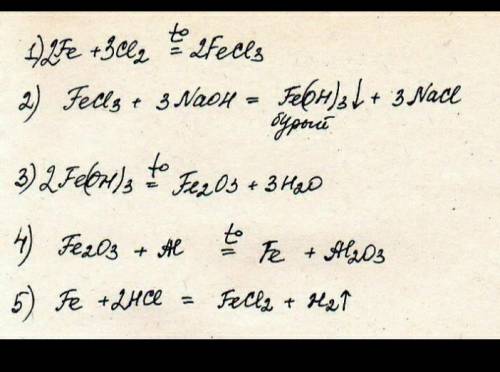 1) 2Fe + 3Cl₂ t° = 2FeCl₃
2) FeCl₃ + 3NaOH = Fe(OH)₃↓ + 3NaCl
бурый
3) 2Fe(OH)₃ t° = Fe₂O₃ + 3H₂O
4) Fe₂O₃ + Al t° = Fe + Al₂O₃
5) Fe + 2HCl = FeCl₂ + H₂↑